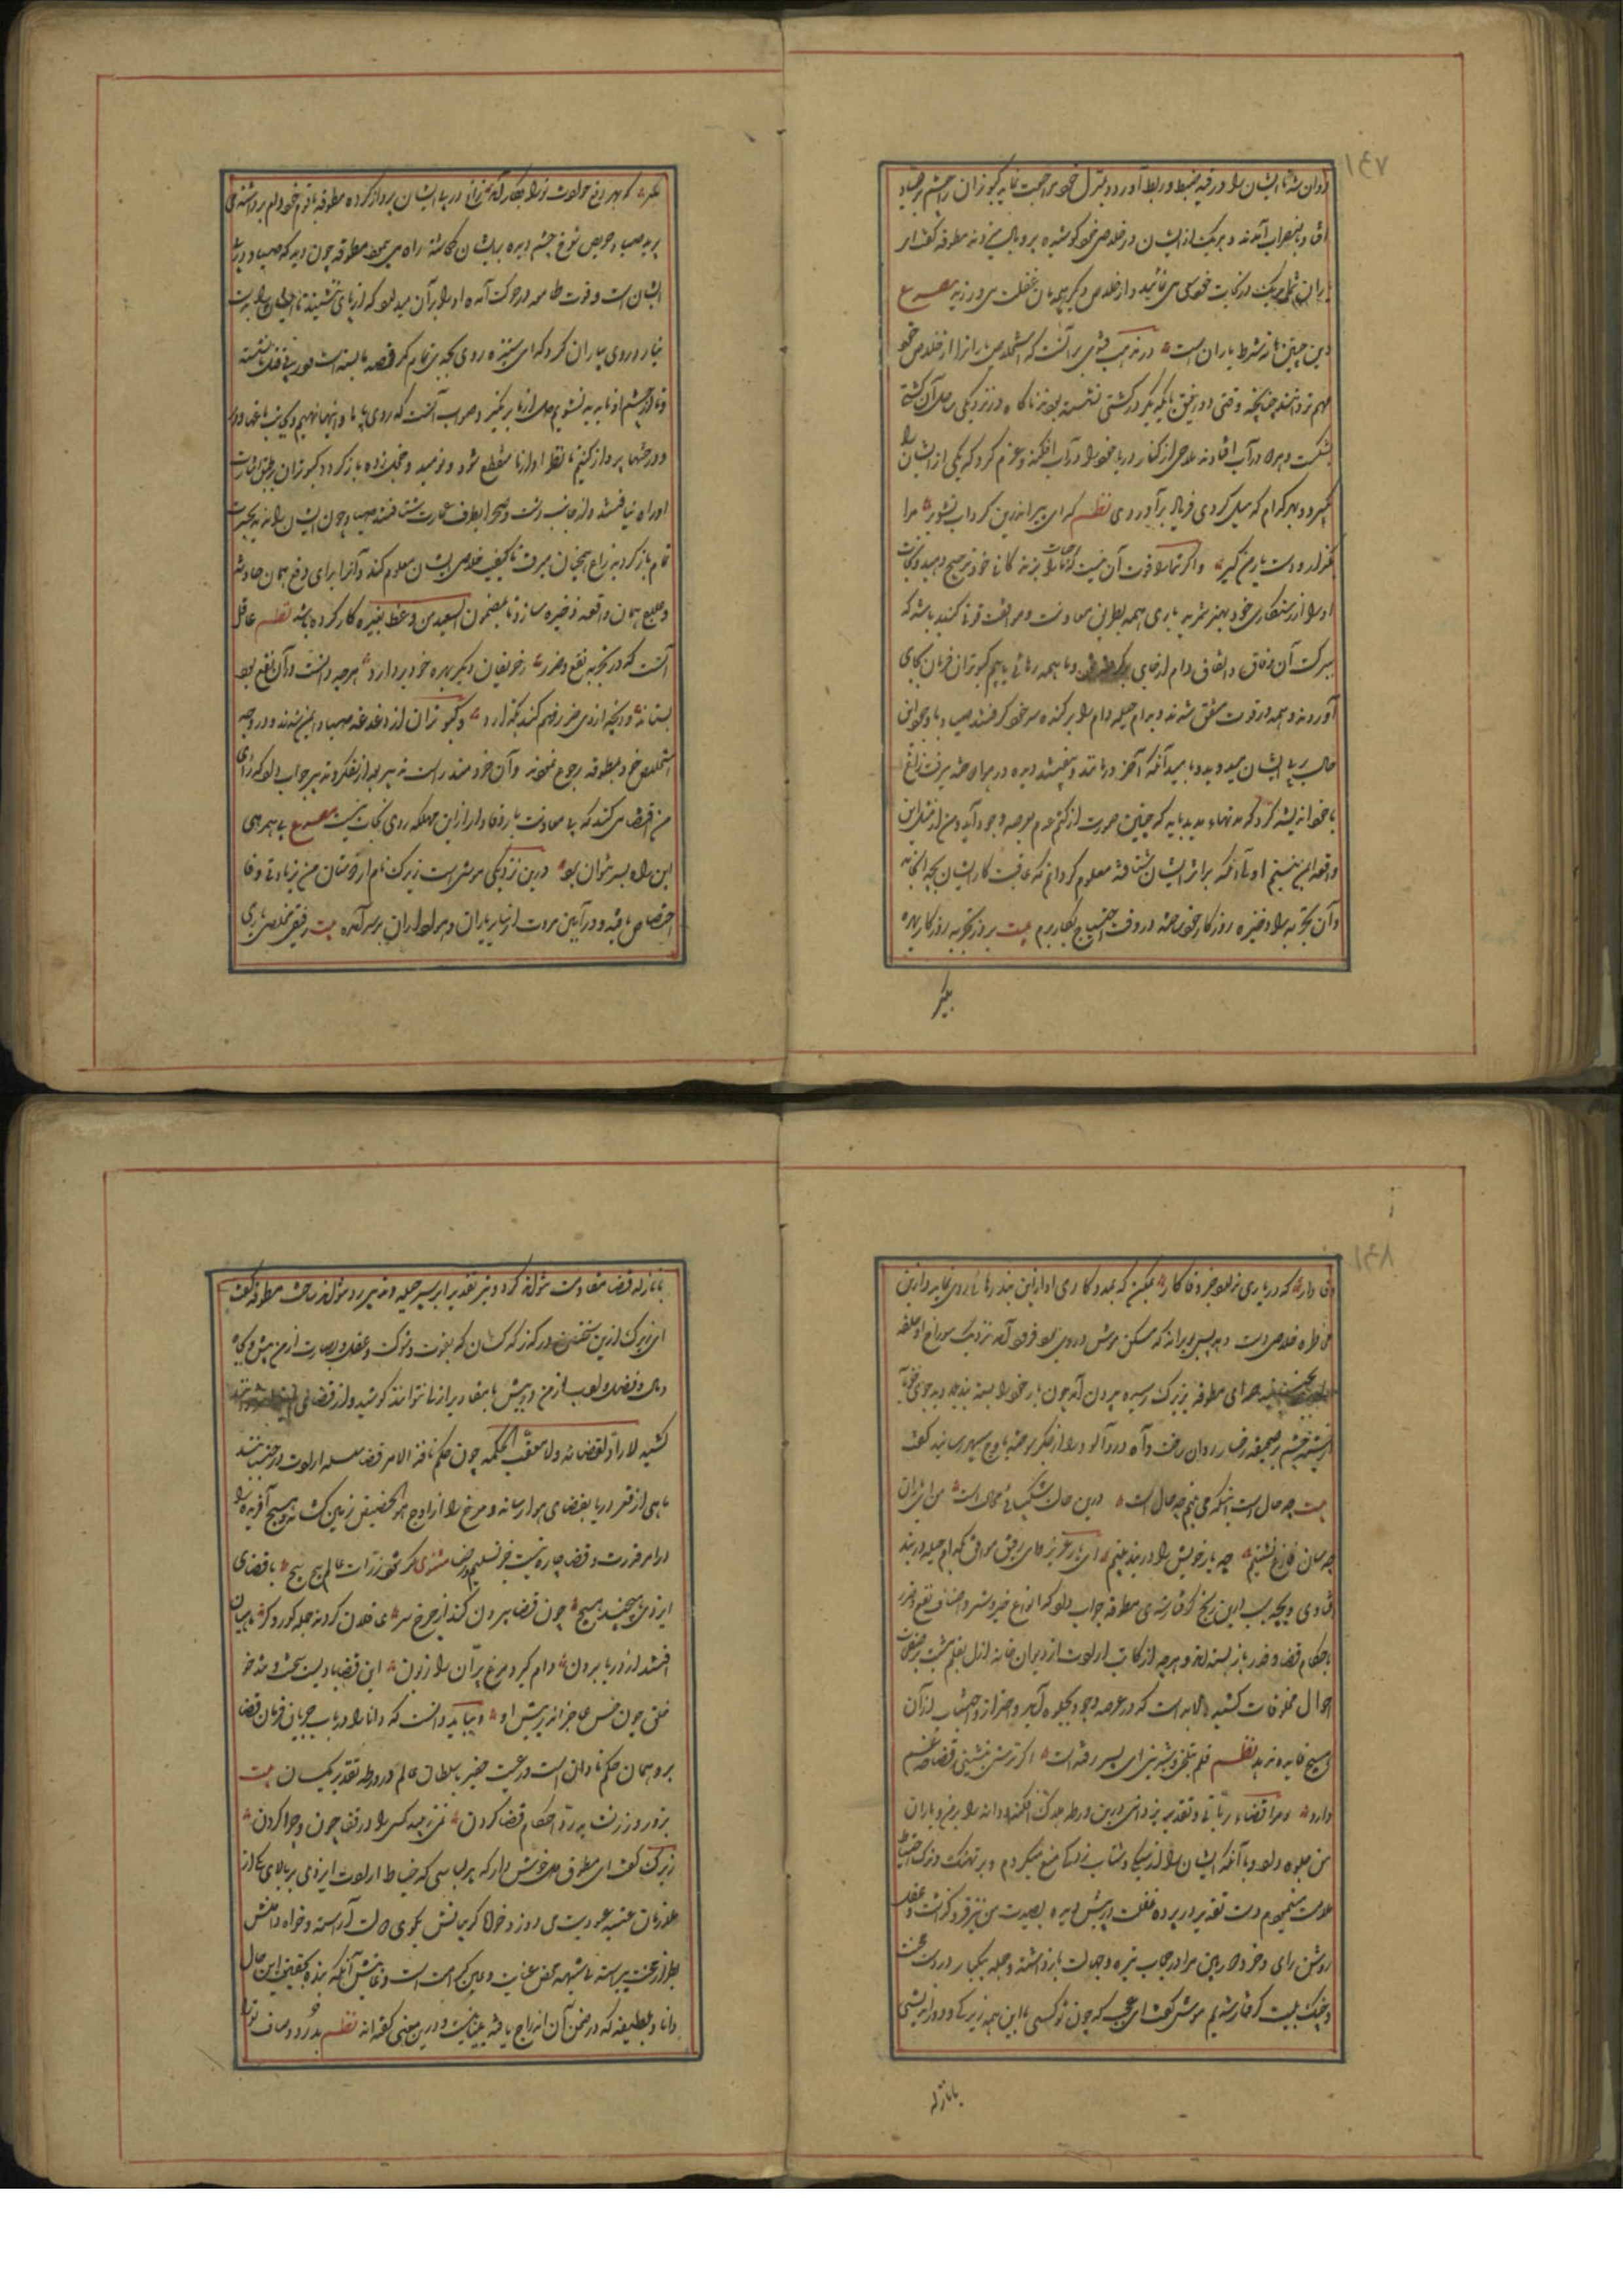 روان شد تا ایشان را در قید ضبط و ربط آورده بمنزل خود مراجعت نماید کبوتران را چشم بر صیاد
افتاد باضطراب آمدند و هریک از ایشان در خلاص خود کوشیده پر و بال میزدند مطوقه گفت ای
یاران شما هریک در نجات خود سعی می نمائید و از خلاص دیگر همه تان غفلت می ورزید مصرع
این چنین ها نه شرط یاران است در مذهب فتوی بر آنست که استخلاص یاران را از خلاص خود
مهم تر دانند چنانچه وقتی دو رفیق بایکدیگر در کشتی نشسته بودند ناگاه در نزدیکی ساحل آن کشتی
بشکست و هر دو در آب افتادند ملاحی از کنار دریا خود را در آب افکند و عزم کرد که یکی از ایشان را
بگیرد و بهر کدام که میل کردی فریاد برآوردی نظم که ای پیر اندرین گرداب تشویر مرا
بگذار و دست یار من گیر و اگر شما را قوت آن نیست که حیات یاران را بر زندگانی خود ترجیح دهید و نجات
او را از رستگاری خود بهتر شمرید باری همه بطریق معاونت و موافقت قوتی کنید باشد که
ببرکت آن وفاق و اتفاق دام از جای برگرفته شود و ما همه رهائی یابیم کبوتران فرمان بجای
آوردند و همه در قوت متفق شدند و بدام حیله دام را برکنده سر خود گرفتند صیاد با وجود این
حال در پی ایشان میدوید و بامید آنکه آخر درمانند و بیفتند دیده در هوا دوخته میرفت زاغ
با خود اندیشه کرد که مدتهاء مدید باید که چنین صورت از کتم عدم بعرصه وجود آید و من از مثل این
واقعه ایمن نیستم اولی آنکه بر اثر ایشان شتافته معلوم گردانم که عاقبت کار ایشان بچه انجامد
و آن تجربه را ذخیره روزگار خود ساخته در وقت احتیاج بکار برم بیت بروز تجربه روزگار بهره
بگیر
بگیر که بهر دفع حوادث ترا بکار آید زاغ در پی ایشان پرواز کرده مطوقه با قوم خود دام برداشته می
پرید صیاد حریص شوخ چشم دیده بر ایشان گماشته راه می پیمود مطوقه چون دید که صیاد در پی
ایشان است و قوت طامعه در حرکت آمده او را بر آن میدارد که از پای ننشیند تا ایشان را بدست
نیارد روی بیاران کرد که این ستیزه روی بجد بر تمام کمر قصد ما بسته است
و تا از چشم او ناپدید نشویم دل از ما برنگیرد و صواب آنست که روی به آبادانیها نهیم و بجانب باغها
و درختها پرواز کنیم تا نظر او از ما منقطع شود و نومید و خجلت زده باز گردد کبوتران بر طبق اشارت
او راه بتافتند و از جانب دشت و صحرا بطرف عمارت شتافتند صیاد چون ایشان را ندید بحسرت
تمام باز گردید زاغ همچنان میرفت تا کیفیت خلاص ایشان معلوم کند و آنرا برای دفع همان حادثه
و علاج همان واقعه ذخیره سازد تا بمضمون السعید من وعظ بغیره کار کرده باشد نظم عاقل
آنست که در تجربه نفع و ضرر از حریفان دیگر بهره خود بردارد هرچه دانست در آن نفع بود
بستاند وانچه از وی ضرر فهم کند بگذارد و کبوتران از دغدغه صیاد ایمن شدند و در وجه
استخلاص خود بمطوقه رجوع نمودند و آن خردمند راست تدبیر بعد از تفکر و تدبر جواب داد که رأی
من اقتضا می کند که بی معاونت یار وفادار از این مهلکه روی نجات نیست مصرع بی همرهی
این راه بسر نتوان برد درین نزدیکی موشی است زیرک نام از دوستان من بزیادتی وفا
اختصاص یافته و در آیین مروت از سایر یاران و هواداران بر سر آمده بیت رفیقی مخلص یاری
وفادار که در یاری ندارد جز وفا کار ممکن که بمددکاری او از این بند رهائی روی نماید و ازین
مخاطره خلاص دست دهد پس بویرانه که مسکن موش در وی بود فرود آمد نزدیک سوراخ او حلقه
صدای مطوقه بزیرک رسیده بیرون آمد چون یار خود را بسته بند بلا دید جوی خوناب
از چشمه چشم بر صحیفه رخسار روان ساخت و آه دردآلود را از جگر سوخته باوج سپهر رسانید گفت
بیت چه حال است اینکه می بینم چه حال است درین حال شکیبائی محال است من ای یاران
چه سان فارغ نشینم چو یار خویش را در بند بینم ای یار عزیز و ای رفیق موافق بکدام حیله در بند
افتادی و بچه سبب درین رنج گرفتار شدی مطوقه جواب داد که انواع خیر و شر و اصناف نفع و ضرر
باحکام قضا و قدر باز بسته اند و هرچه از کاتب ارادت از دیوان خانه ازل بقلم مشیت بر صفحات
احوال مخلوقات کشیده لابد است که در عرصه وجود جلوه آید و احتراز و اجتناب از آن
هیچ فایده ندهد نظم قلم بتلخی و شیرینی ای پسر رفته است اگر ترش بنشینی قضا چه غم
دارد و مرا قضاء ربانی و تقدیر یزدانی درین ورطه هلاک افکند و دانه را بر من و یاران
من جلوه داد و باآنکه ایشان را از سبکی و شتاب زدگی منع میکردم و بر تهتک و ترک احتیاط
ملامت مینمودم دست تقدیر پرده غفلت در پیش دیده بصیرت من نیز فرو گذاشت و عقل
روشن رای و خرد دوربین مرا در حجاب تیره جهالت بازداشته و جمله یکبار در دست محنت
و چنگ بلیت گرفتار شدیم موش گفت ای عجب که چون تو کسی با این همه زیرکی و دوراندیشی
با نازله
با نازله قضا مقاومت نتواند کرد و تیر تقدیر را بسپر حیله و تدبیر رد نتواند ساخت مطوقه گفت
ای زیرک ازین سخن در گذر که کسان که بقوت و شوکت و عقل و بصارت از من بیش و بجاه
و مال و فضل و ادب از من در پیش با مقادیر ازلی نتوانند کوشید و از قضای
کشید لا راد لقضائه ولا معقب لحکمه چون حکم نافذ الامر قضا سلسله ارادت در جنباند
ماهی از قعر دریا بفضای هوا رساند و مرغ را از اوج هوا بحضیض زمین کشد و هیچ آفریده را
در امر قدرت و قضا چاره نیست جز تسلیم و رضا مثنوی گر شود ذرات عالم پیچ پیچ با قضای
ایزدی هیچند هیچ چون قضا بیرون کند از چرخ سر عاقلان گردند جمله کور و کر ماهیان
افتند از دریا برون دام گیرد مرغ پران را زبون این قضا بادیست سخت و تند خو
خلق چون خس عاجز اندر پیش او و بباید دانست که دانا را در باب جریان فرمان قضا
بر وی همان حکم نادان است و رعیت حقیر با سلطان عالم در ورطه تقدیر یکسان بیت
بزور و زر نشاید رد احکام قضا کردن نمی رسد کسی را در قضا چون و چرا کردن
زیرک گفت ای مطوقه دل خوش دار که هر لباسی که خیاط ارادت ایزدی بر بالای یکی از
ملازمان عتبه عبودیت می دوزد خواه گریبانش بگوی دولت آراسته و خواه دامنش
بطراز محنت پیراسته باشد محض عنایت و عین کرامت است و غایتش آنکه بنده بحقیقت این حال
دانا و بلطیفه که در ضمن آن اندراج یافته بینا نیست و درین معنی گفته اند نظم بدُرد و صاف ترا